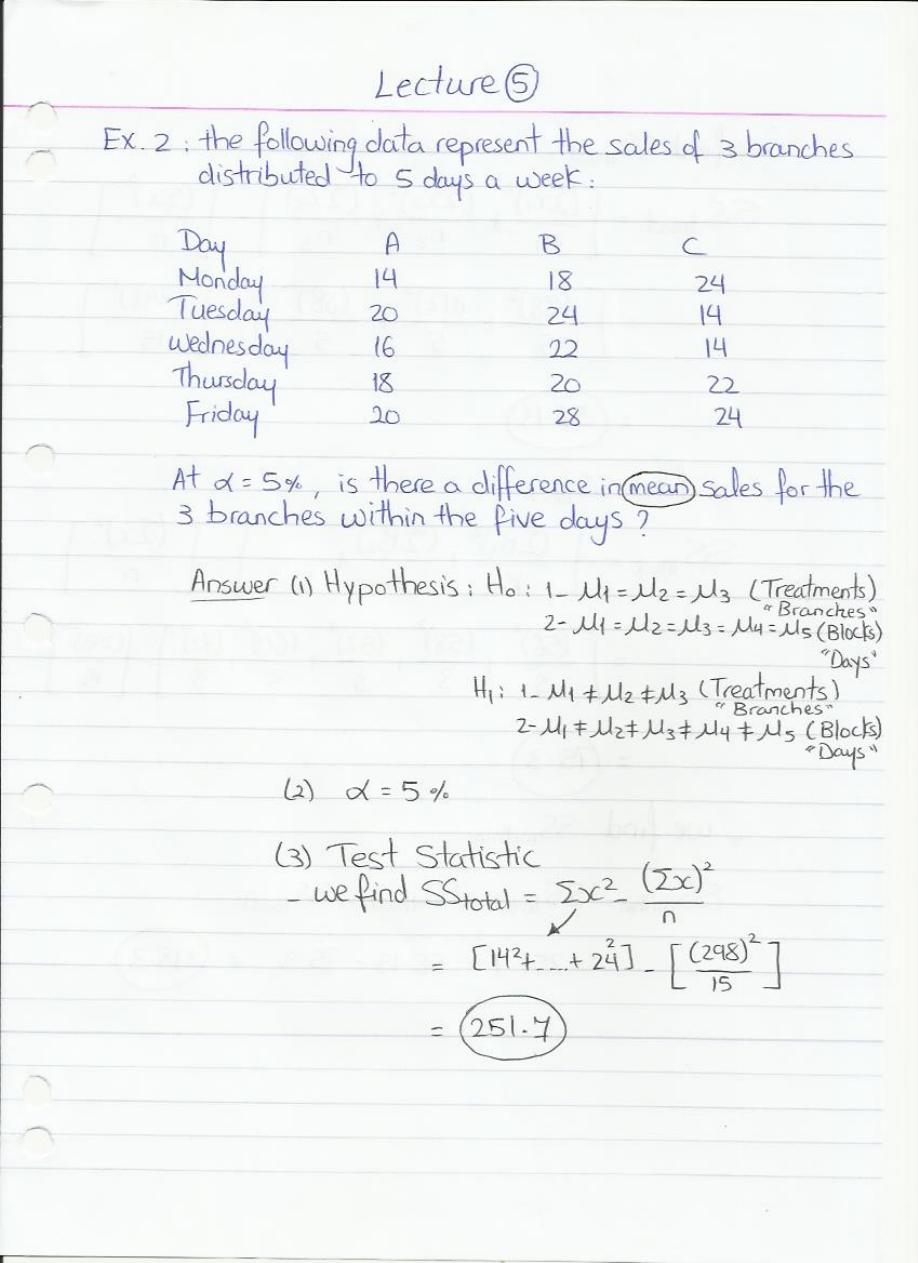 Lecture ⑤
Ex. 2 : the following data represent the sales of 3 branches
distributed to 5 days a week :
Day A B C
Monday 14 18 24
Tuesday 20 24 14
Wednesday 16 22 14
Thursday 18 20 22
Friday 20 28 24
At α = 5%, is there a difference in mean sales for the
3 branches within the five days ?
Answer (1) Hypothesis : H₀ : 1- μ₁ = μ₂ = μ₃ (Treatments)
"Branches"
2- μ₁ = μ₂ = μ₃ = μ₄ = μ₅ (Blocks)
"Days"
H₁ : 1- μ₁ ≠ μ₂ ≠ μ₃ (Treatments)
"Branches"
2- μ₁ ≠ μ₂ ≠ μ₃ ≠ μ₄ ≠ μ₅ (Blocks)
"Days"
(2) α = 5 %
(3) Test Statistic
- we find SStotal = Σx² - (Σx)²
n
= [14² + .... + 24²] - [(298)²
15]
= 251.7